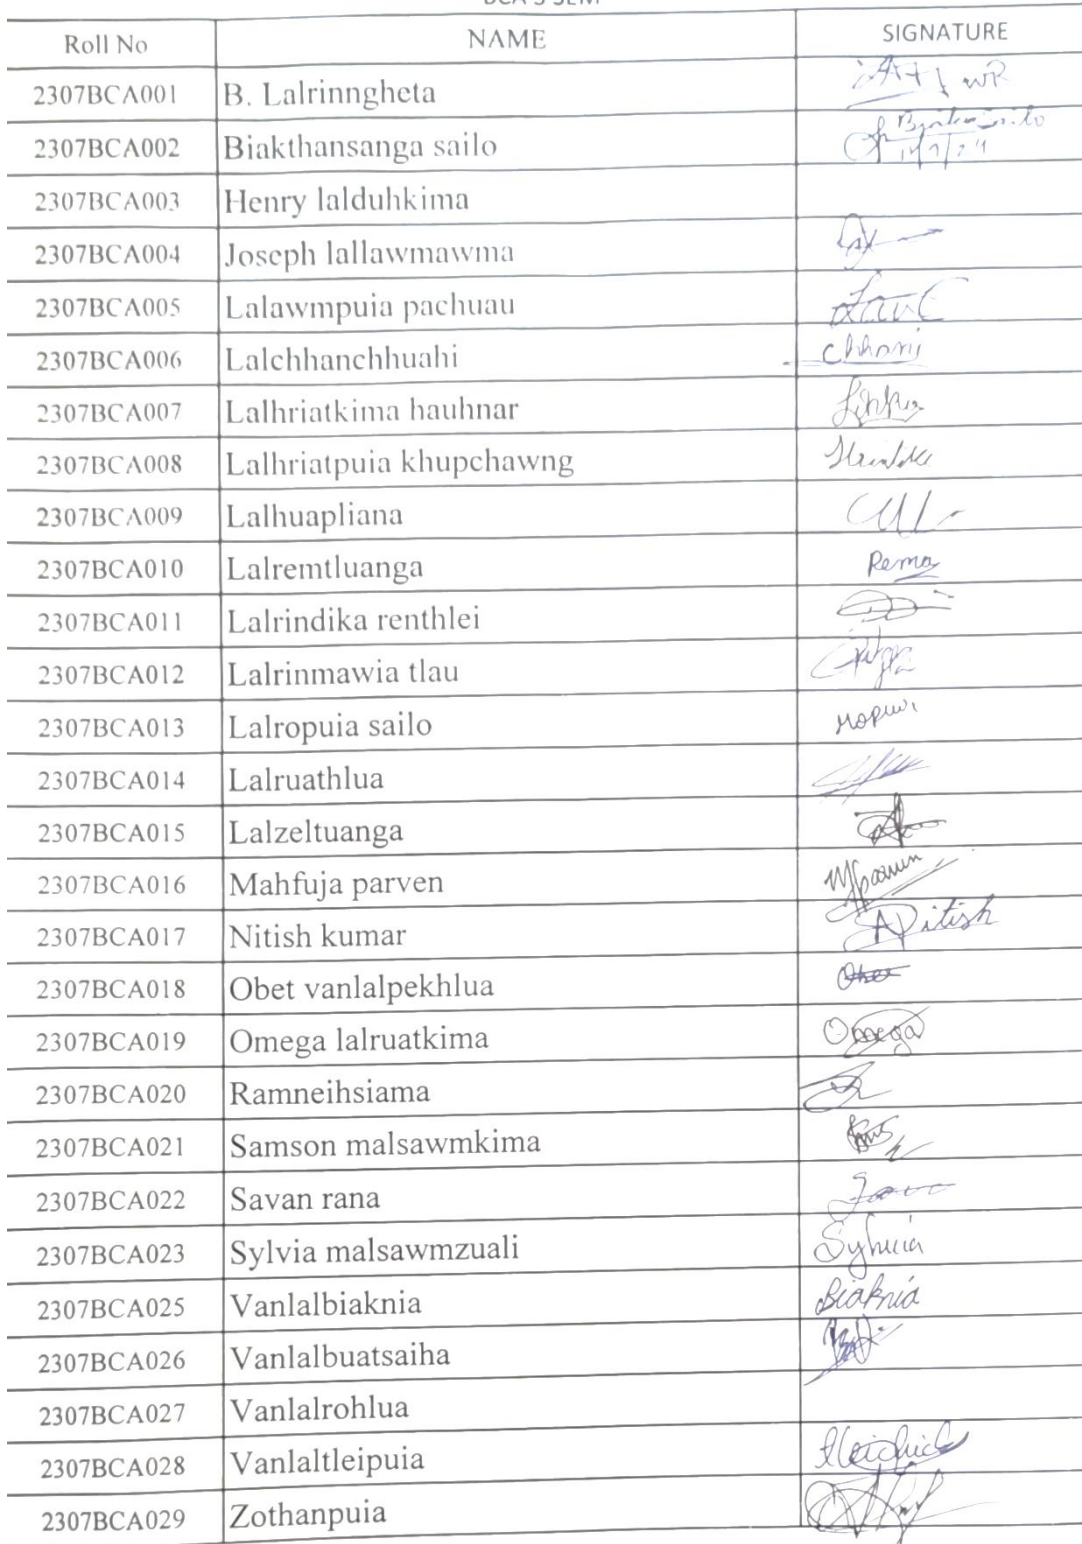 BCA 3 SEM
Roll No NAME SIGNATURE
2307BCA001 B. Lalrinngheta
2307BCA002 Biakthansanga sailo
2307BCA003 Henry lalduhkima
2307BCA004 Joseph lallawmawma
2307BCA005 Lalawmpuia pachuau
2307BCA006 Lalchhanchhuahi Chhani
2307BCA007 Lalhriatkima hauhnar
2307BCA008 Lalhriatpuia khupchawng
2307BCA009 Lalhuapliana
2307BCA010 Lalremtluanga Rema
2307BCA011 Lalrindika renthlei
2307BCA012 Lalrinmawia tlau
2307BCA013 Lalropuia sailo
2307BCA014 Lalruathlua
2307BCA015 Lalzeltuanga
2307BCA016 Mahfuja parven
2307BCA017 Nitish kumar Nitish
2307BCA018 Obet vanlalpekhlua
2307BCA019 Omega lalruatkima Omega
2307BCA020 Ramneihsiama
2307BCA021 Samson malsawmkima
2307BCA022 Savan rana
2307BCA023 Sylvia malsawmzuali Sylvia
2307BCA025 Vanlalbiaknia Biaknia
2307BCA026 Vanlalbuatsaiha
2307BCA027 Vanlalrohlua
2307BCA028 Vanlaltleipuia
2307BCA029 Zothanpuia